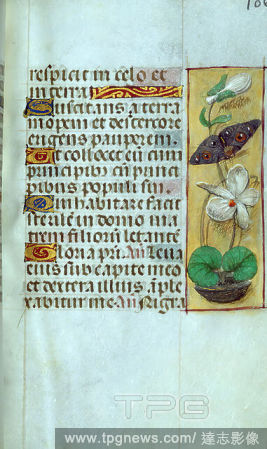 106
respicit in celo et
in terra
Suscitans a terra
inopem et de stercore
erigens pauperem.
Ut collocet eū cum
principib9 cū princi
pibus populi sui.
Qui habitare facit
sterilē in domo ma
trem filiorū letantē
Gloria pri. Añ Leua
eius sub capite meo
et dextera illius āple
xabitur me. Añ Nigra
TPG
www.tpgnews.com/ 達志影像